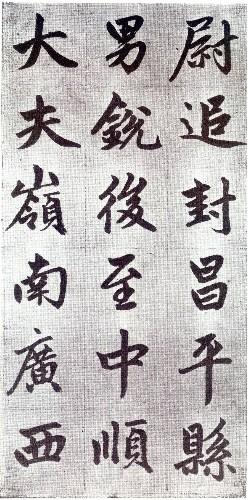 尉追封昌平縣
男銳後至中順
大夫嶺南廣西